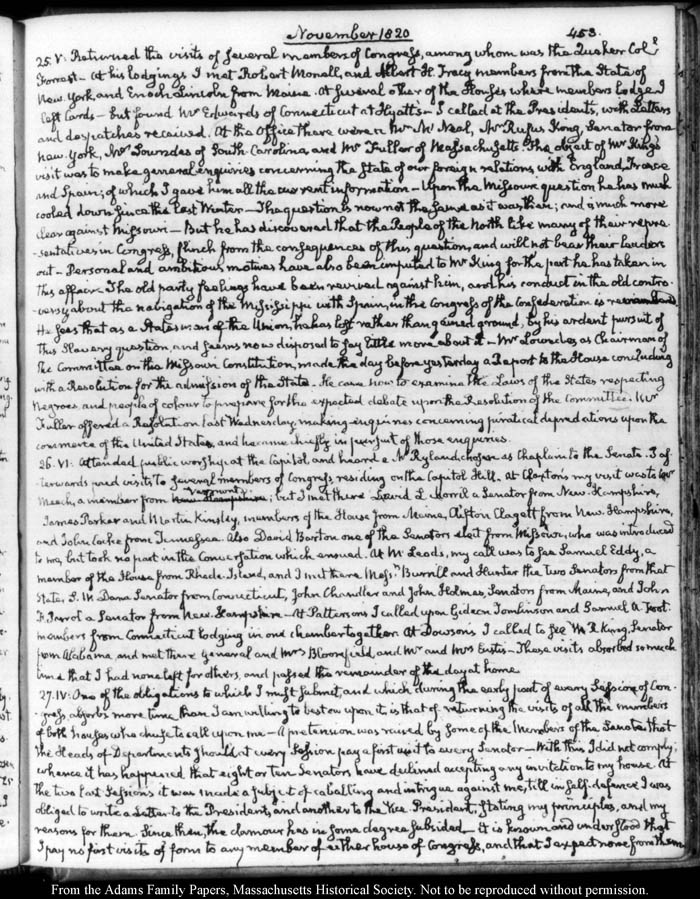 November 1820
453.
25. V. Returned the visits of several members of Congress, among whom was the Quaker Colr.
Forrest — At his lodgings I met Robert Monell, and Albert H. Tracy members from the State of
New York, and Enoch Lincoln from Maine. At several other of the Houses where members lodge I
left Cards — but found Mr Edwards of Connecticut at Hyatt's — I called at the President's, with Letters
and despatches received. At the Office there were a Mr Mc Neal, Mr Rufus King, Senator from
New York, Mr Lowndes of South-Carolina, and Mr Fuller of Massachusetts. The object of Mr King's
visit was to make general enquiries concerning the State of our foreign relations, with England, France
and Spain; of which I gave him all the current information — Upon the Missouri question he has much
cooled down since the last Winter — The question is now not the same as it was then; and is much more
clear against Missouri — But he has discovered that the People of the North like many of their repre-
-sentatives in Congress, flinch from the consequences of this question, and will not bear their leaders
out — Personal and ambitious motives have also been imputed to Mr King for the part he has taken in
this affair. The old party feelings have been revived against him, and his conduct in the old contro-
-versy about the navigation of the Mississippi with Spain, in the Congress of the Confederation is remembered
He sees that as a Statesman of the Union, he has left rather than gained ground, by his ardent pursuit of
this Slavery question, and seems now disposed to say little more about it — Mr Lowndes as Chairman of
the Committee on the Missouri Constitution, made the day before yesterday a Report to the House concluding
with a Resolution for the admission of the State — He came now to examine the Laws of the States respecting
Negroes and people of colour to prepare for the expected debate upon the Resolution of the Committee. Mr
Fuller offered a Resolution last Wednesday, making enquiries concerning piratical depredations upon the
commerce of the United States, and he came chiefly in pursuit of those enquiries.
26. VI. Attended public worship at the Capitol and heard a Mr Ryland chosen as Chaplain to the Senate. I af-
terwards paid visits to several members of Congress, residing on the Capitol Hill. At Claxton's my visit was to Mr
Vermont
Meech, a member from New Hampshire; but I met there David L. Morril a Senator from New Hampshire,
James Parker and Martin Kinsley, members of the House from Maine, Clifton Clagett from New Hampshire,
and John Cocke from Tennessee. Also David Barton one of the Senators elect from Missouri, who was introduced
to me, but took no part in the Conversation which ensued. At Mc Leod's, my call was to see Samuel Eddy, a
member of the House from Rhode-Island, and I met there Messrs Burrill and Hunter the two Senators from that
State, S. W. Dana Senator from Connecticut, John Chandler and John Holmes, Senators from Maine, and John
F. Parrot a Senator from New Hampshire — At Patterson's I called upon Gideon Tomlinson and Samuel A. Foot
members from Connecticut lodging in one chamber together. At Dowson's I called to see W. R. King, Senator
from Alabama, and met there General and Mrs Bloomfield, and Mr and Mrs Eustis — These visits absorbed so much
time that I had none left for others, and passed the remainder of the day at home.
27. IV. One of the obligations to which I must submit, and which during the early part of every Session of Con-
-gress, absorbs more time than I am willing to bestow upon it, is that of returning the visits of all the members
of both houses who chuse to call upon me — A pretension was raised by some of the Members of the Senate that
the Heads of Departments should at every Session pay a first visit to every Senator — With this I did not comply;
whence it has happened that eight or ten Senators have declined accepting any invitation to my house. At
the two last Sessions it was made a subject of caballing and intrigue against me, till in self-defence I was
obliged to write a Letter to the President, and another to the Vice President, stating my principles, and my
reasons for them. Since then, the clamour has in some degree subsided — It is known and understood that
I pay no first visits of form to any member of either house of Congress, and that I expect none from them
From the Adams Family Papers, Massachusetts Historical Society. Not to be reproduced without permission.